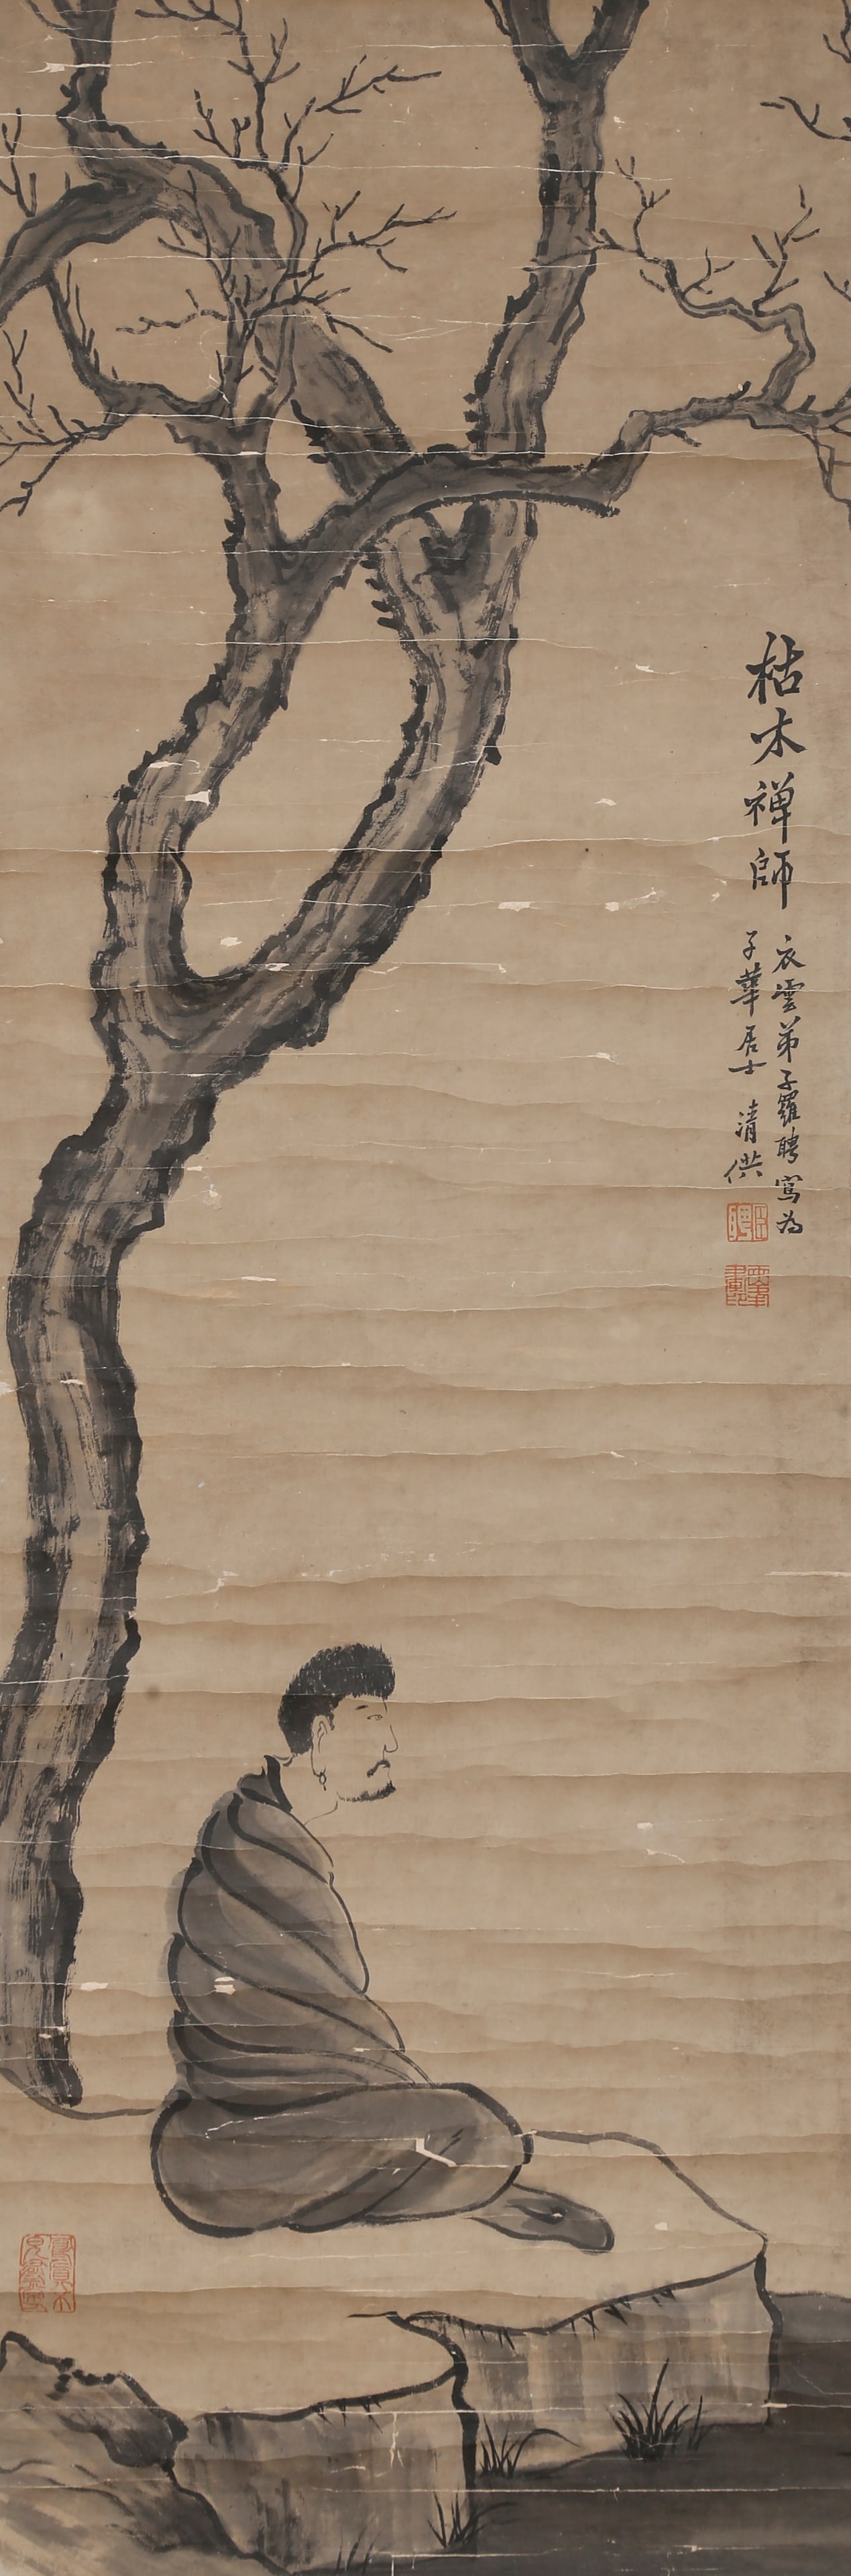 枯木禅師
衣雲弟子羅聘寫為
子華居士 清供